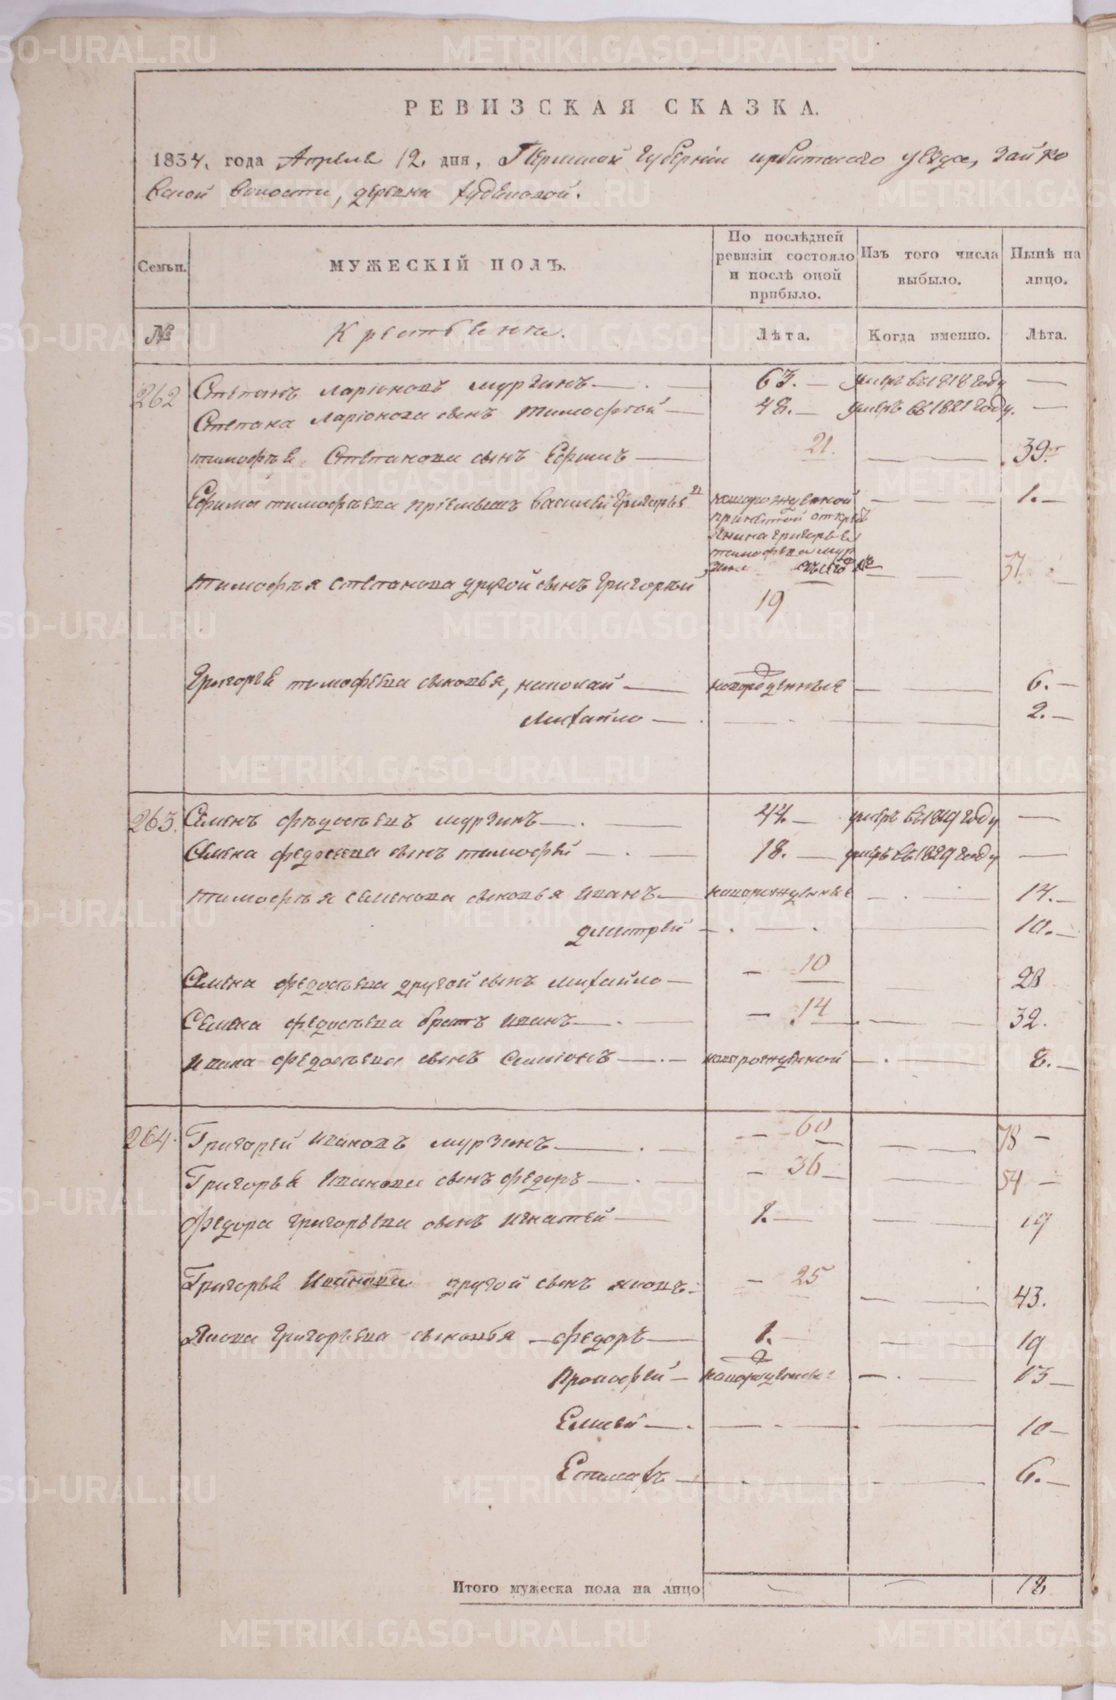 РЕВИЗСКАЯ СКАЗКА.
1834. года Апреля 12. дня, Пермской губернiи ирбитскаго уезда, Зайко
вской волости, деревни
Семьи. МУЖЕСКIЙ ПОЛЪ. По послѣдней ревизiи состояло и послѣ оной прибыло. Изъ того числа выбыло. Нынѣ на лицо.
№ Крестьяне. Лѣта. Когда именно. Лѣта.
262 Степанъ Ларiоновъ мурзинъ 63. умеръ въ 1818 году
Степана Ларiонова сынъ тимофей 48. умеръ въ 1821 году.
тимофея Степанова сынъ Ефимъ 21. 39.
Ефима тимофеева прiемышъ василей Григорьев новорожденной 1.
Тимофея степанова другой сынъ Григорей 19 37
Григорья тимофеева сыновья, николай новорожденные 6.
михайло 2.
263. Семенъ федосеевъ мурзинъ 44. умеръ въ 1819 году
Семена федосеева сынъ тимофей 18. умеръ въ 1829 году
тимофея семенова сыновья Иванъ новорожденные 14.
дмитрей 10.
Семена федосеева другой сынъ михайло 10 28
Семена федосеева братъ иванъ 14 32.
Ивана федосеева сынъ Симионъ новорожденной 8.
264. Григорей ивановъ мурзинъ 60 78
Григорья Иванова сынъ федоръ 36 54
федора григорьева сынъ игнатей 1. 19
Григорья Иванова другой сынъ яковъ 25 43.
Якова Григорьева сыновья федоръ 1. 19
Прокофей новорожденные 13
Елисей 10
Епимахъ 6.
Итого мужеска пола на лицо 18
METRIKI.GASO-URAL.RU